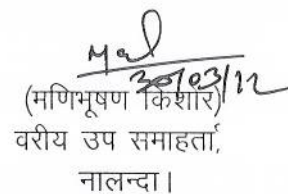 30/03/12
(मणिभूषण किशोर)
वरीय उप समाहर्ता,
नालन्दा।